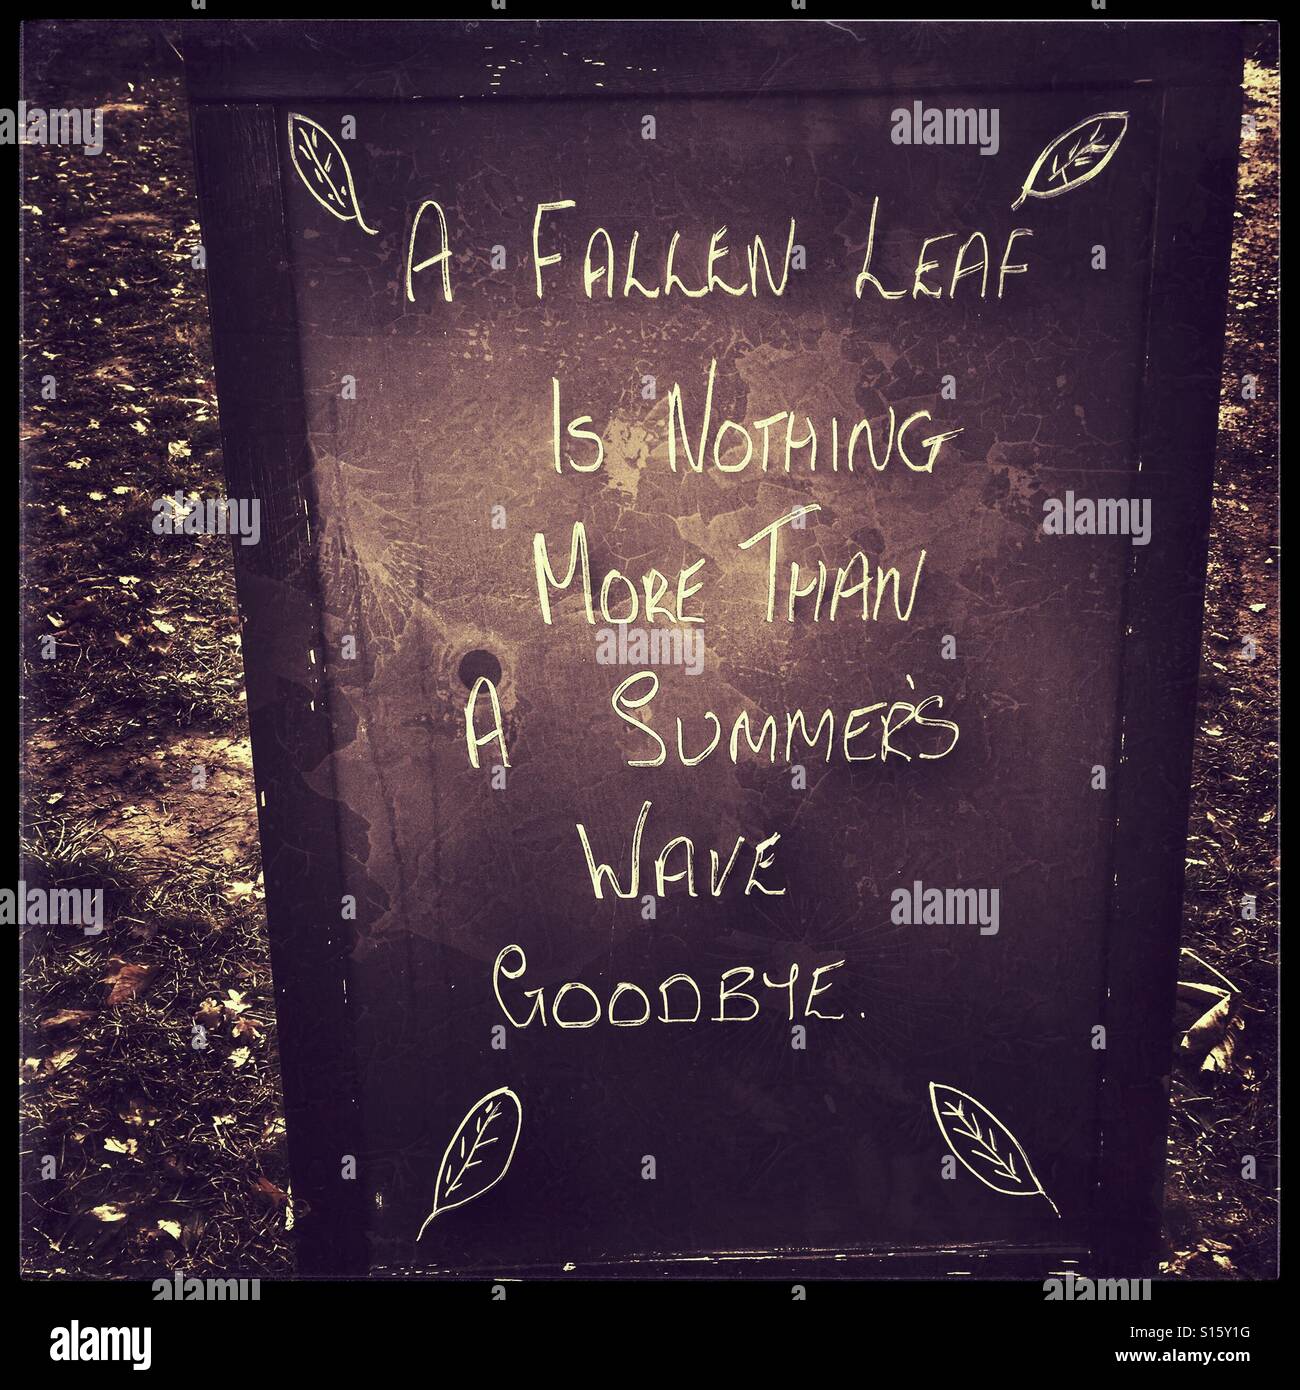 A FALLEN LEAF
IS NOTHING
MORE THAN
A SUMMER'S
WAVE
GOODBYE.
alamy
alamy
alamy
alamy
alamy
alamy
alamy
a alamy
Image ID: S15Y1G
www.alamy.com